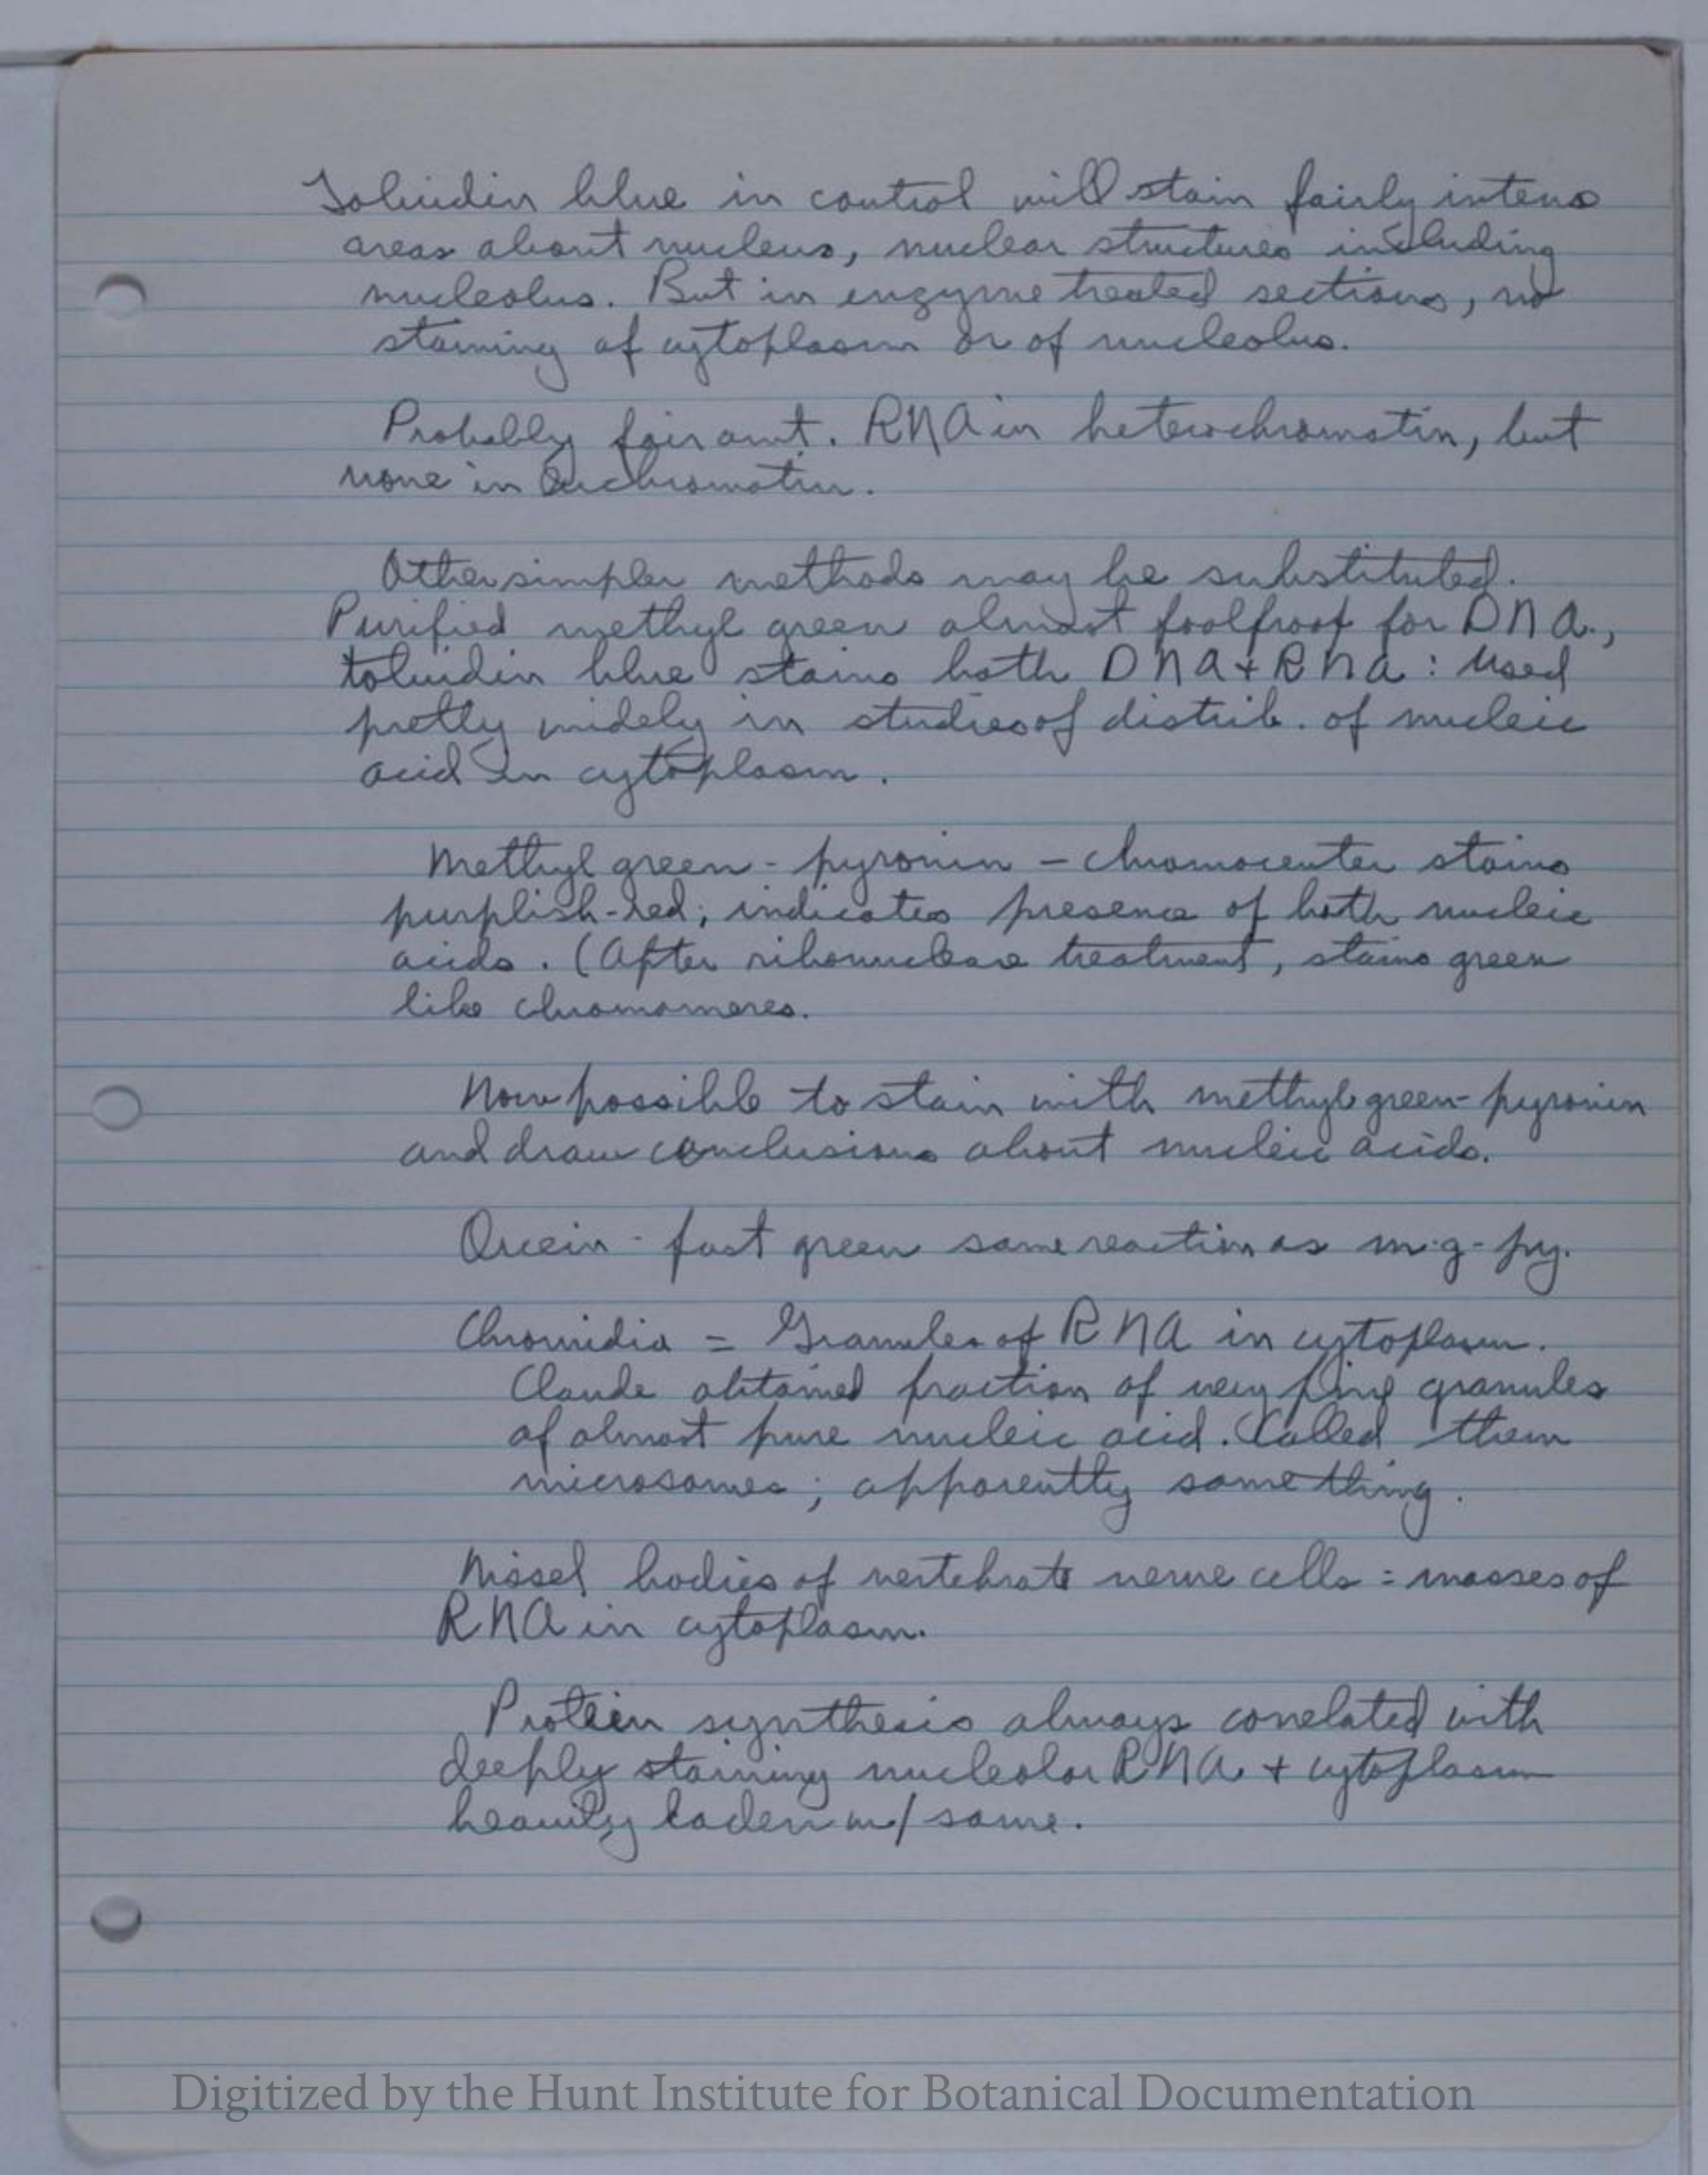 Toluidin blue in control will stain fairly intens
areas about nucleus, nuclear structures including
nucleolus. But in enzyme treated sections, no
staining of cytoplasm or of nucleolus.
Probably fair amt. RNA in heterochromatin, but
none in Euchromatin.
Other simpler methods may be substituted.
Purified methyl green almost foolproof for DNA.,
toluidin blue stains both DNA + RNA : Used
pretty widely in studies of distrib. of nucleic
acid in cytoplasm.
Methyl green - pyronin - chromocenter stains
purplish-red; indicates presence of both nucleic
acids. (After ribonuclease treatment, stains green
like chromomeres.
Now possible to stain with methyl green-pyronin
and draw conclusions about nucleic acids.
Orcein - fast green same reaction as m.g-py.
Chromidia = Granules of RNA in cytoplasm.
Claude obtained fraction of very fine granules
of almost pure nucleic acid. Called them
microsomes; apparently same thing.
Nissel bodies of vertebrate nerve cells = masses of
RNA in cytoplasm.
Protein synthesis always correlated with
deeply staining nucleolar RNA + cytoplasm
heavily laden w/ same.
Digitized by the Hunt Institute for Botanical Documentation